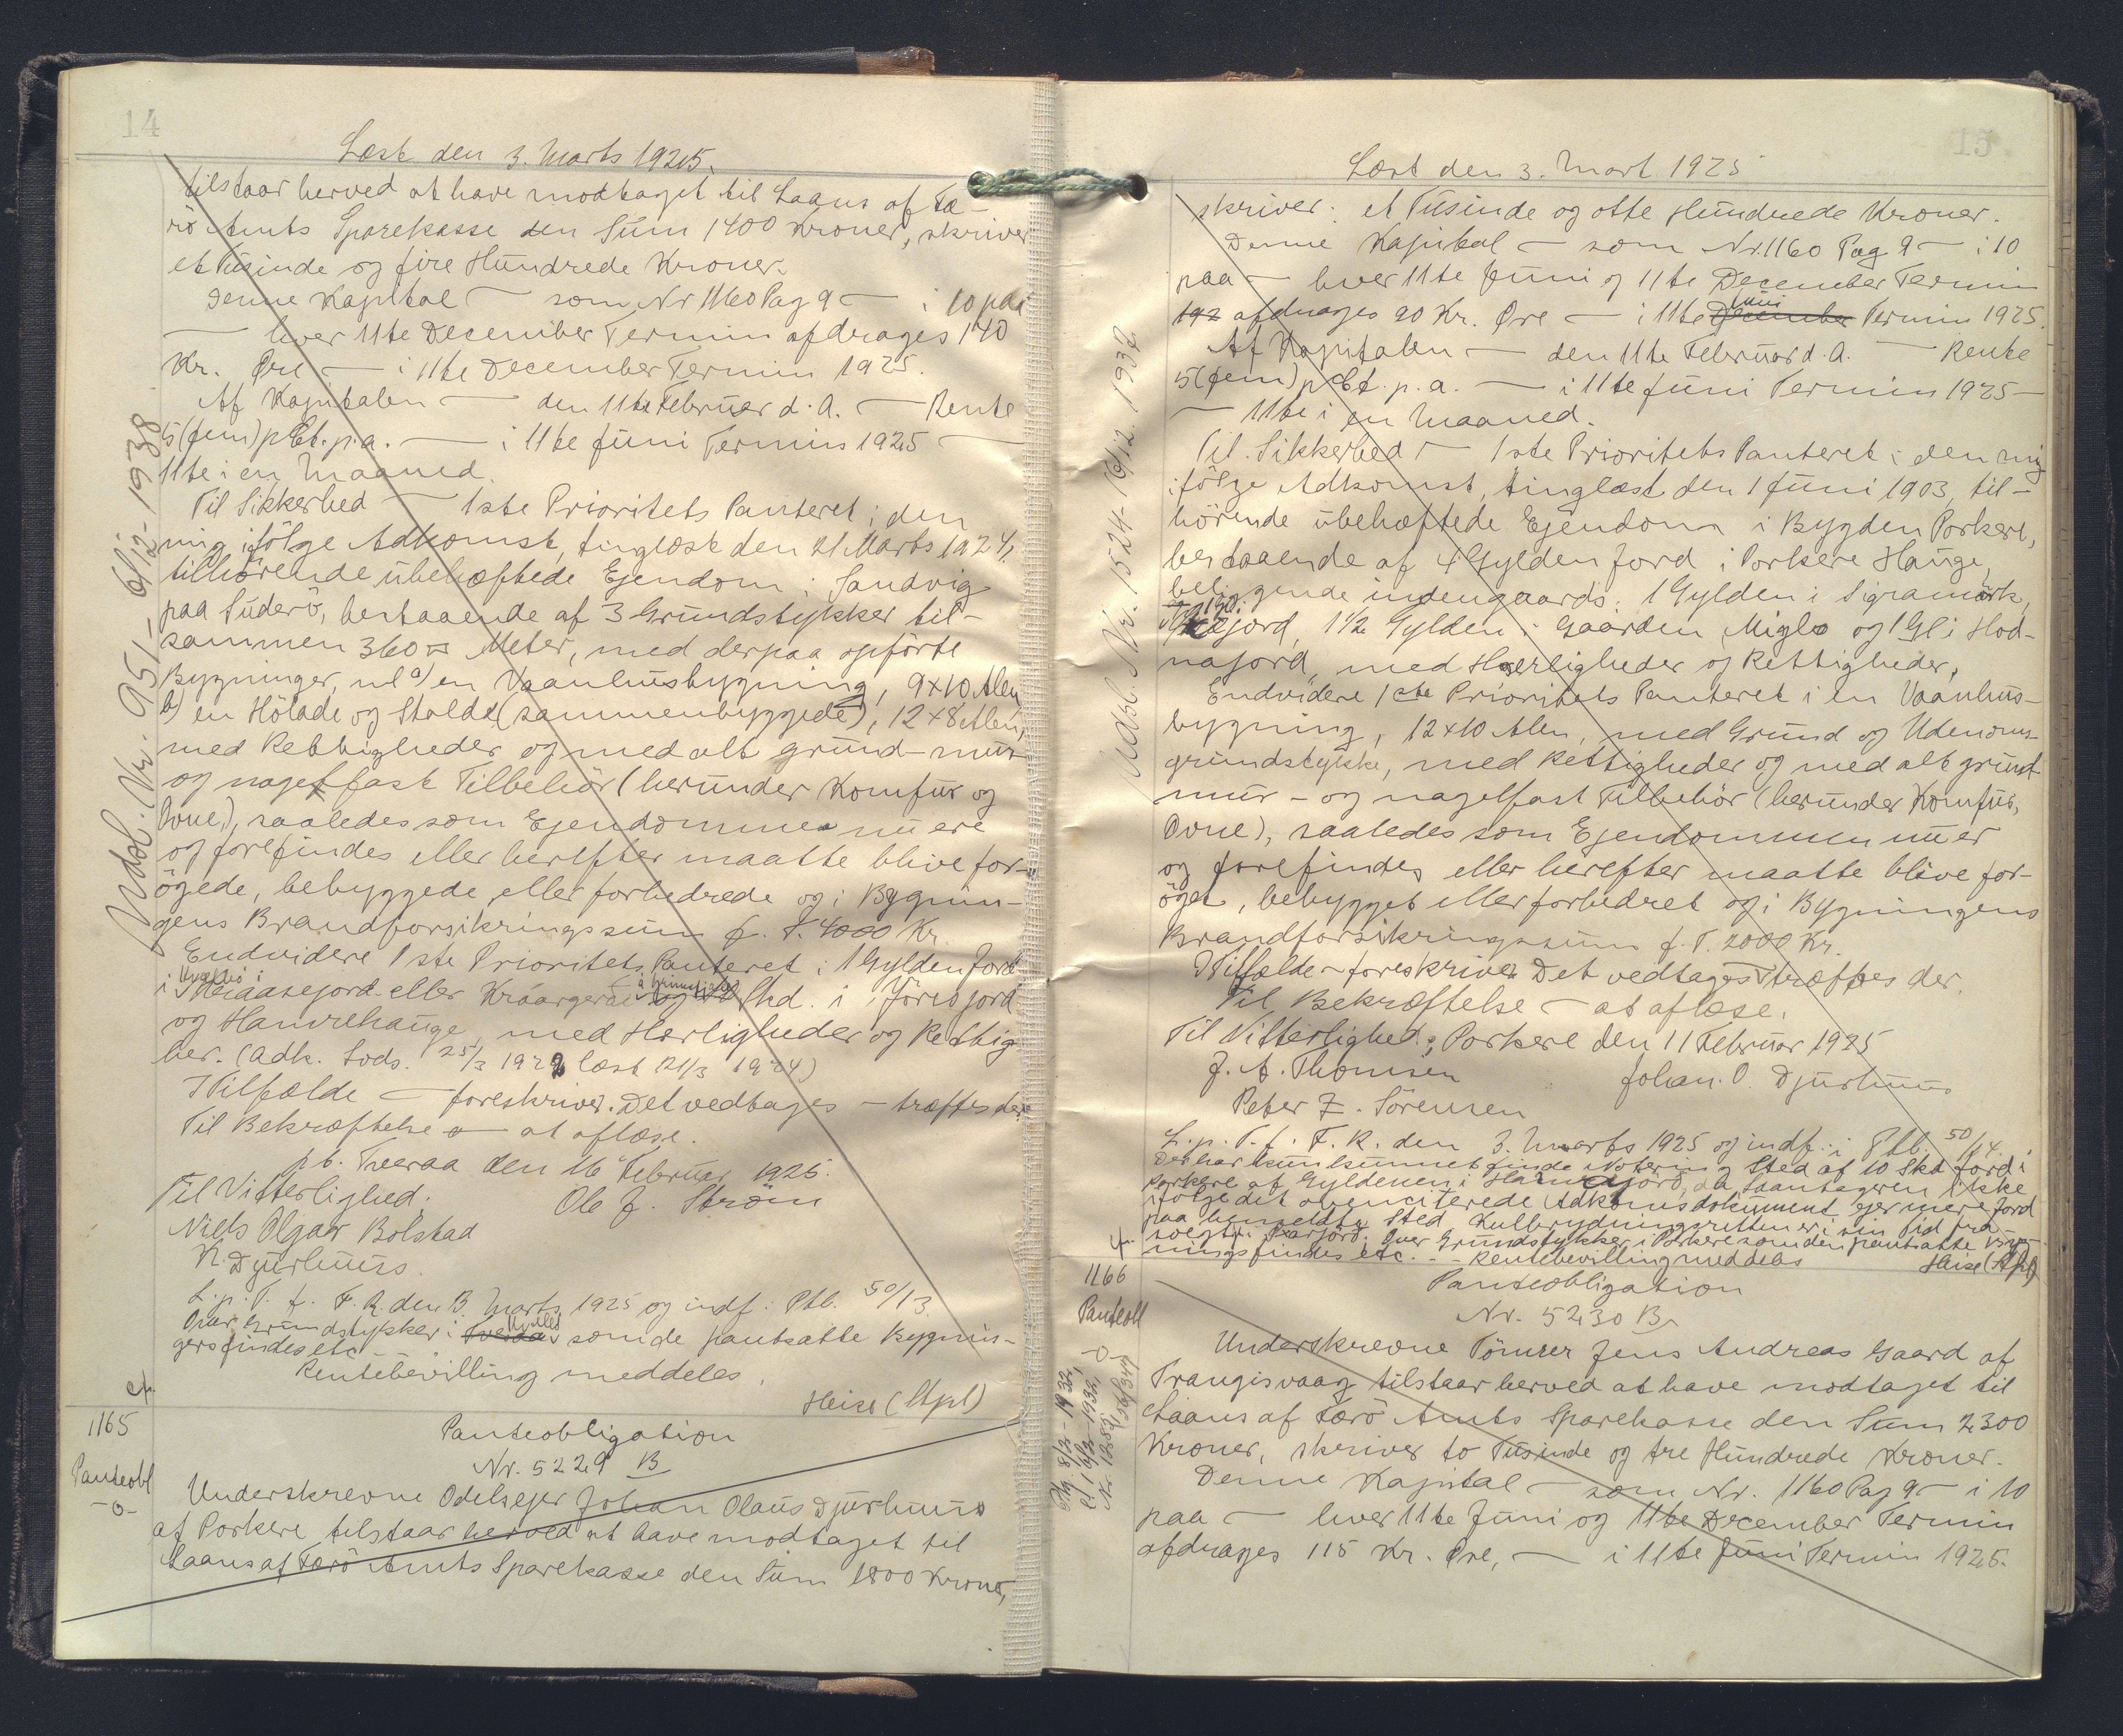 14
Læst den 3. Marts 1925.
tilstaar herved at have modtaget til Laans af Fæ-
rö Amts Sparekasse den Sum 1400 Kroner, skriver
et Tusinde og fire Hundrede Kroner.
Denne Kapital — som Nr 1160 Pag 9 — i 10 paa
— hver 11te December Termin afdrages 140
Kr. Øre — i 11te December Termin 1925.
Af Kapitalen — den 11te Februar d. A. — Rente
5 (fem) pCt. p. a. — i 11te Juni Termin 1925 —
11te i en Maaned.
Til Sikkerhed — 1ste Prioritets Panteret i den
mig ifölge Adkomst, tinglæst den 21 Marts 1924,
tilhörende ubehæftede Ejendom i Sandvig
paa Suderö, bestaaende af 3 Grundstykker til-
sammen 360 □ Meter, med derpaa opförte
Bygninger, nl a) en Vaanhusbygning, 9×10 Alen
b) en Hölade og Stalde (sammenbyggede), 12×8 Alen,
med Rettigheder og med alt grund- mur-
og nagelfast Tilbehör (herunder Komfur og
Ovne), saaledes som Ejendommene nu ere
og forefindes eller herefter maatte blive for-
ögede, bebyggede eller forbedrede og i Bygnin-
gens Brandforsikringssum f. T. 4000 Kr.
Endvidere 1ste Prioritets Panteret i 1 Gylden Jord
i eller og Skd. i Jöresjord
og Hamrehauge, med Herligheder og Rettig
her. (Adk. Lods. 25/3 1922 læst 21/3 1924)
I Tilfælde — foreskriver. Det vedtages — træffes der.
Til Bekræftelse — at aflæse.
pt. Tveraa den 16 Februar 1925.
Til Vitterlighed. Ole J. Ström
Niels Olgar Bolstad
K. Djurhuus.
L. p. T. f. F. R. den 3. Marts 1925 og indf. i Ptb. 50/13.
Over Grundstykker i Hvalbö som de pantsatte Bygnin-
gers findes etc.
Rentebevilling meddeles.
Heise (Apl)
Udsl. Nr. 951 - 6/12-1938
cf.
1165
Panteobl
-o-
Panteobligation
Nr. 5229 B
Underskrevne Odelsejer Johan Olaus Djurhuus
af Porkere tilstaar herved at have modtaget til
Laans af Færö Amts Sparekasse den Sum 1800 Kroner,
15
Læst den 3. Mart 1925
skriver: et Tusinde og otte Hundrede Kroner.
Denne Kapital — som Nr. 1160 Pag 9 — i 10
paa — hver 11te Juni og 11te December Termin
192 afdrages 90 Kr. Øre — i 11te December Juni Termin 1925.
Af Kapitalen — den 11te Februar d. A. — Rente
5 (fem) pCt. p. a. — i 11te Juni Termin 1925 —
— 11te i en Maaned.
Til Sikkerhed — 1ste Prioritets Panteret i den mig
ifölge Adkomst, tinglæst den 1 Juni 1903, til-
hörende ubehæftede Ejendom i Bygden Porkere,
bestaaende af 4 Gylden Jord i Porkere Hauge,
beliggende indengaards: 1 Gylden i Sigramörk,
1½ Gylden i Gaarden Miglo og 1 Gl i Hod-
najord, med Herligheder og Rettigheder,
Endvidere 1ste Prioritets Panteret i en Vaanhus-
bygning, 12×10 Alen, med Grund og Udenoms-
grundstykke, med Rettigheder og med alt grund-
mur- og nagelfast Tilbehör (herunder Komfur,
Ovne), saaledes som Ejendommen nu er
og forefindes eller herefter maatte blive for-
öget, bebygget eller forbedret og i Bygningens
Brandforsikringssum f. T. 2000 Kr.
I Tilfælde — foreskriver Det vedtages træffes der.
Til Bekræftelse — at aflæse.
Til Vitterlighed; Porkere den 11 Februar 1925
J. A. Thomsen Johan. O. Djurhuus
Peter Z. Sörensen
L. p. T. f. F. R. den 3. Marts 1925 og indf. i Ptb. 50/14.
Der har kun kunnet finde Notering Sted af 10 Skd Jord i
Porkere af Gyldenen i da Laantageren ikke
ifölge det ovenciterede Adkomstdokument ejer mere Jord
paa bemeldte Sted. Kulbrydningsretten er i sin Tid fra-
solgt i Over Grundstykker i Porkere som den pantsatte Byg-
nings findes etc. - - Rentebevilling meddeles Heise (Apl)
Udsl. Nr. 1524 - 16/12. 1937
cf.
1166
Panteobl
-o-
Panteobligation
Nr. 5230 B
Underskrevne Tömrer Jens Andreas Gaard af
Trangisvaag tilstaar herved at have modtaget til
Laans af Færö Amts Sparekasse den Sum 2300
Kroner, skriver to Tusinde og tre Hundrede Kroner.
Denne Kapital — som Nr. 1160 Pag 9 — i 10
paa — hver 11te Juni og 11te December Termin
afdrages 115 Kr. Øre, — i 11te Juni Termin 1925.